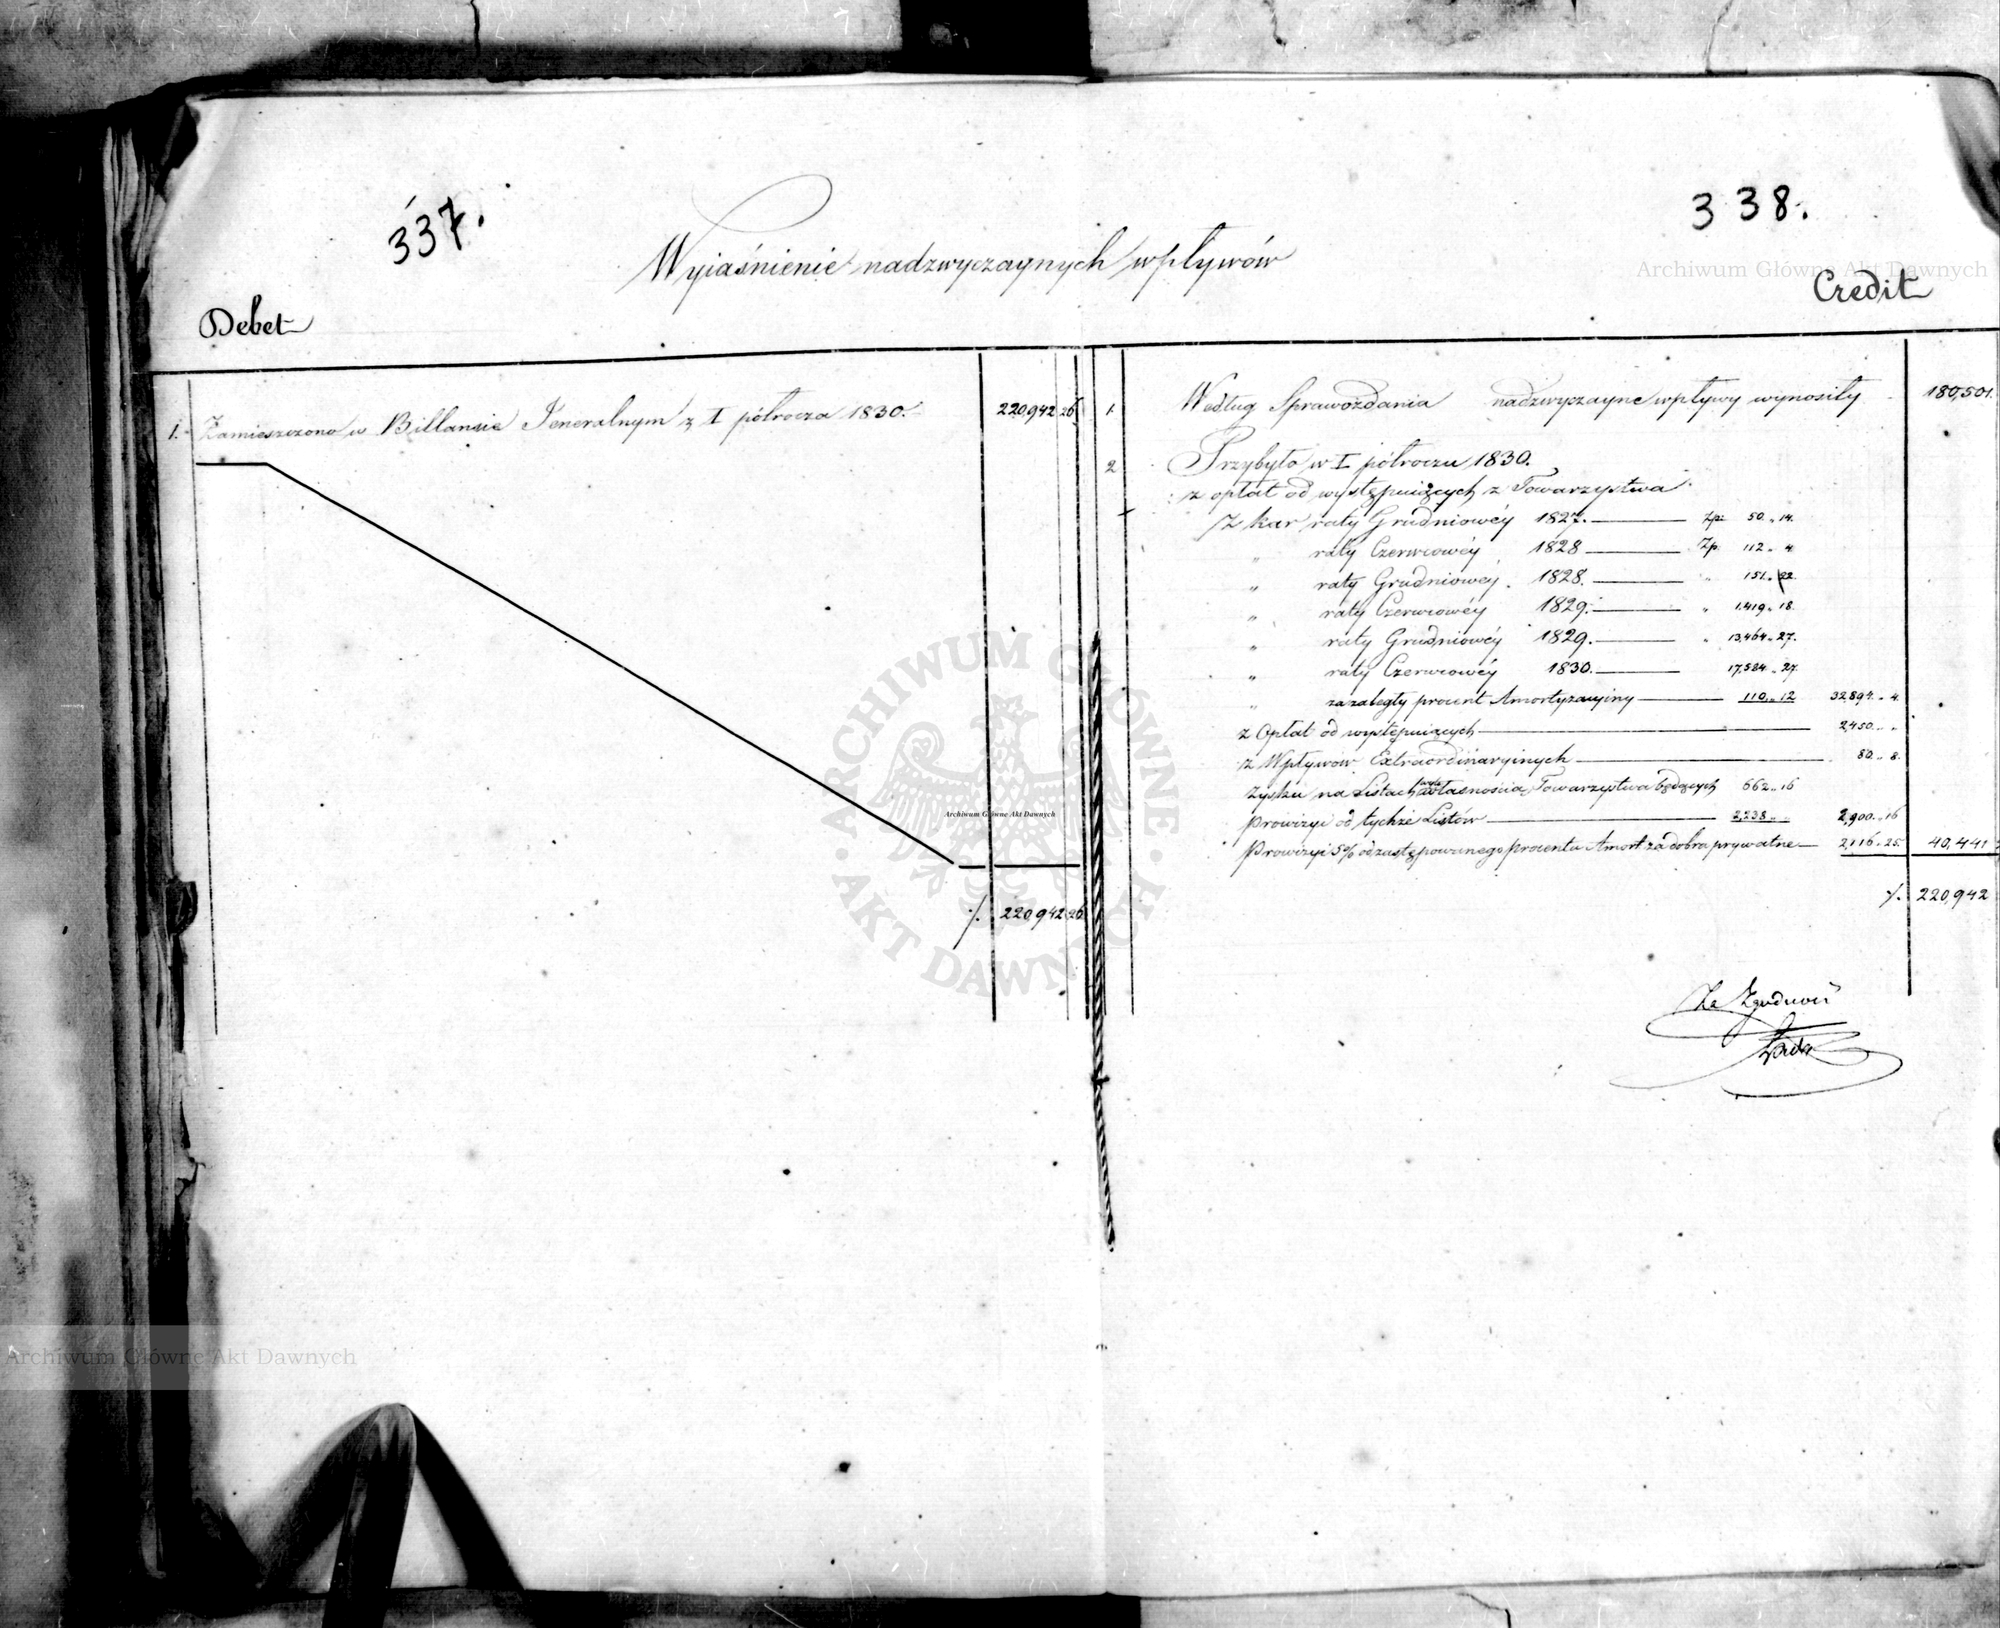 337.
338.
Wyiaśnienie nadzwyczaynych wpływów
Archiwum Główne Akt Dawnych
Debet
Credit
1. Zamieszczono w Billansie Jeneralnym z I półrocza 1830. 220,942 26
./. 220,942 26
1. Według Sprawozdania nadzwyczayne wpływy wynosiły 180,501.
2 Przybyło w I półroczu 1830.
z opłat od występuiących z Towarzystwa
Z kar raty Grudniowéy 1827. Zp: 50 „ 14.
„ raty Czerwcowéy 1828 Zp. 112 „ 4
„ raty Grudniowéy. 1828. „ 151 „ 22.
„ raty Czerwcowéy 1829. „ 1,419 „ 18.
„ raty Grudniowéy 1829. „ 13,464 „ 27.
„ raty Czerwcowéy 1830. 17,584 „ 27.
„ za zaległy procent Amortyzacyiny 110 „ 12 32894 „ 4.
z Opłat od występuiących 2,450 „ „
z Wpływów Extraordinaryinych 80 „ 8.
Zysku na Listach własnością Towarzystwa będących 662 „ 16
Prowizyi od tychże Listów 2,238 „ „ 2,900 „ 16
Prowizyi 5% od zastępowanego procentu Amort za dobra prywatne 2,116 „ 25. 40,441
./. 220,942
Za Zgodność
ARCHIWUM GŁÓWNE AKT DAWNYCH
Archiwum Główne Akt Dawnych
Archiwum Główne Akt Dawnych